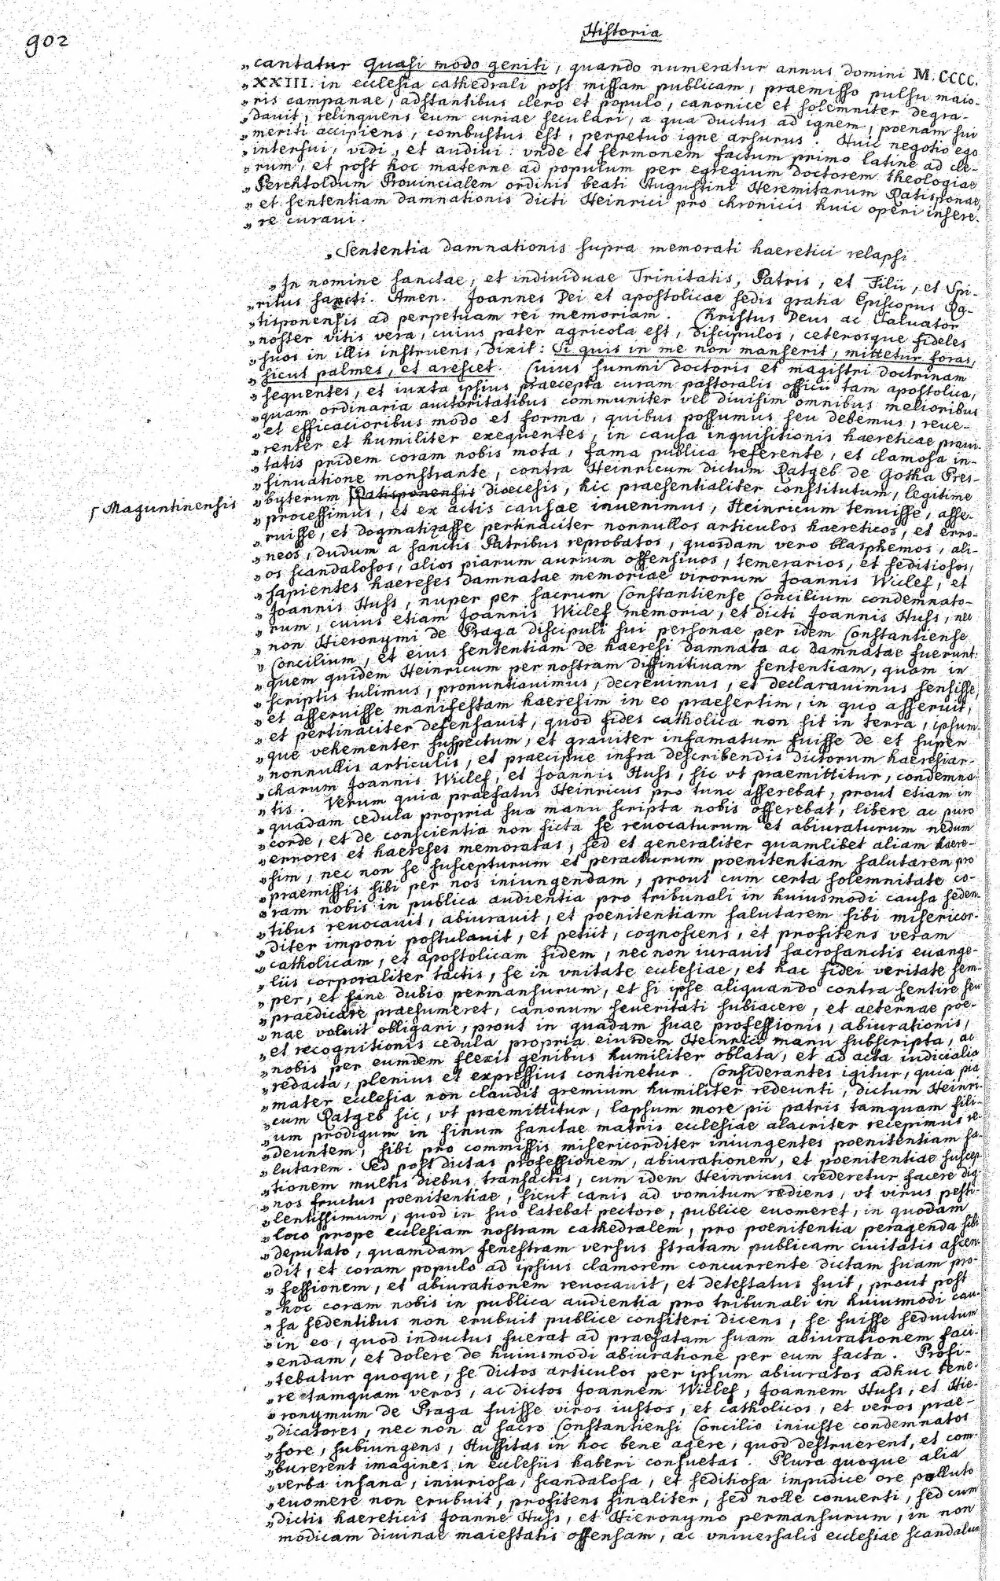 902
Historia
„cantatur quasi modo geniti, quando numeratur annus domini M.CCCC.
„XXIII. in ecclesia cathedrali post missam publicam, praemisso pulsu maio-
„ris campanae, adstantibus clero et populo, canonice et solemniter degra-
„dauit, relinquens eum curiae seculari, a qua ductus ad ignem, poenam sui
„meriti accipiens, combustus est, perpetuo igne arsurus. Huic negotio ego
„interfui, vidi, et audiui: vnde et sermonem factum primo latine ad cle-
„rum, et post hoc materne ad populum per egregium doctorem theologiae
„Perchtoldum Prouincialem ordinis beati Augustini Heremitarum Ratisponae,
„et sententiam damnationis dicti Heinrici pro chronicis huic operi insere-
„re curaui.
„Sententia damnationis supra memorati haeretici relapsi.
„In nomine sanctae, et indiuiduae Trinitatis, Patris, et Filii, et Spi-
„ritus sancti. Amen. Joannes Dei et apostolicae sedis gratia Episcopus Ra-
„tisponensis ad perpetuam rei memoriam. Christus Deus ac Saluator
„noster vitis vera, cuius pater agricola est, discipulos, ceterosque fideles
„suos in illis instruens, dixit: Si quis in me non manserit, mittetur foras,
„sicut palmes, et arescet. Cuius summi doctoris et magistri doctrinam
„sequentes, et iuxta ipsius praecepta curam pastoralis officii tam apostolica,
„quam ordinaria auctoritatibus communiter vel diuisim omnibus melioribus
„et efficacioribus modo et forma, quibus possumus seu debemus, reue-
„renter et humiliter exequentes, in causa inquisitionis haereticae praui-
„tatis pridem coram nobis mota, fama publica referente, et clamosa in-
„sinuatione monstrante, contra Heinricum dictum Ratgeb de Gotha Pres-
„byterum Ratisponensis dioecesis, hic praesentialiter constitutum, legitime
Maguntinensis
„processimus, et ex actis causae inuenimus, Heinricum tenuisse, asse-
„ruisse, et dogmatizasse pertinaciter nonnullos articulos haereticos, et erro-
„neos, dudum a sanctis Patribus reprobatos, quosdam vero blasphemos, ali-
„os scandalosos, alios piarum aurium offensiuos, temerarios, et seditiosos,
„sapientes haereses damnatae memoriae virorum Joannis Wiclef, et
„Joannis Huss, nuper per sacrum Constantiense Concilium condemnato-
„rum, cuius etiam Joannis Wiclef memoria, et dicti Joannis Huss, nec
„non Hieronymi de Praga discipuli sui personae per idem Constantiense
„Concilium, et eius sententiam de haeresi damnata ac damnatae fuerunt:
„quem quidem Heinricum per nostram diffinitiuam sententiam, quam in
„scriptis tulimus, pronuntiauimus, decreuimus, et declarauimus sensisse,
„et asseruisse manifestam haeresim in eo praesertim, in quo asseruit,
„et pertinaciter defensauit, quod fides catholica non sit in terra, ipsum
„que vehementer suspectum, et grauiter infamatum fuisse de et super
„nonnullis articulis, et praecipue infra describendis dictorum haeresiar-
„charum Joannis Wiclef, et Joannis Huss, sic vt praemittitur, condemna-
„tis. Verum quia praefatus Heinricus pro tunc asserebat, prout etiam in
„quadam cedula propria sua manu scripta nobis offerebat, libere ac puro
„corde, et de conscientia non ficta se reuocaturum et abiuraturum nedum
„errores et haereses memoratas, sed et generaliter quamlibet aliam haere-
„sim, nec non se suscepturum et peracturum poenitentiam salutarem pro
„praemissis sibi per nos iniungendam, prout cum certa solemnitate co-
„ram nobis in publica audientia pro tribunali in huiusmodi causa seden-
„tibus reuocauit, abiurauit, et poenitentiam salutarem sibi misericor-
„diter imponi postulauit, et petiit, cognoscens, et profitens veram
„catholicam, et apostolicam fidem, nec non iurauit sacrosanctis euange-
„liis corporaliter tactis, se in vnitate ecclesiae, et hac fidei veritate sem-
„per, et sine dubio permansurum, et si ipse aliquando contra sentire seu
„praedicare praesumeret, canonum seueritati subiacere, et aeternae poe-
„nae voluit obligari, prout in quadam suae professionis, abiurationis,
„et recognitionis cedula propria eiusdem Heinrici manu subscripta, ac
„nobis per eumdem flexis genibus humiliter oblata, et ad acta iudicialia
„redacta, plenius et expressius continetur. Considerantes igitur, quia pia
„mater ecclesia non claudit gremium humiliter redeunti, dictum Heinri-
„cum Ratgeb sic, vt praemittitur, lapsum more pii patris tamquam fili-
„um prodigum in sinum sanctae matris ecclesiae alacriter recepimus re-
„deuntem, sibi pro commissis misericorditer iniungentes poenitentiam sa-
„lutarem. Sed post dictas professionem, abiurationem, et poenitentiae suscep-
„tionem multis diebus transactis, cum idem Heinricus crederetur facere dig-
„nos fructus poenitentiae, sicut canis ad vomitum rediens, vt virus pesti-
„lentissimum, quod in suo latebat pectore, publice euomeret, in quodam
„loco prope ecclesiam nostram cathedralem, pro poenitentia peragenda sibi
„deputato, quamdam fenestram versus stratam publicam ciuitatis ascen-
„dit, et coram populo ad ipsius clamorem concurrente dictam suam pro-
„fessionem, et abiurationem reuocauit, et detestatus fuit, prout post
„hoc coram nobis in publica audientia pro tribunali in huiusmodi cau-
„sa sedentibus non erubuit publice confiteri dicens, se fuisse seductum
„in eo, quod inductus fuerat ad praefatam suam abiurationem faci-
„endam, et dolere de huiusmodi abiuratione per eum facta. Profi-
„tebatur quoque, se dictos articulos per ipsum abiuratos adhuc tene-
„re tamquam veros, ac dictos Joannem Wiclef, Joannem Huss, et Hie-
„ronymum de Praga fuisse viros iustos, et catholicos, et veros prae-
„dicatores, nec non a sacro Constantiensi Concilio iniuste condemnatos
„fore, subiungens, Hussitas in hoc bene agere, quod destruerent, et com-
„burerent imagines in ecclesiis haberi consuetas. Plura quoque alia
„verba insana, iniuriosa, scandalosa, et seditiosa impudice ore polluto
„euomere non erubuit, profitens finaliter, sed nolle conuerti, sed cum
„dictis haereticis Joanne Huss, et Hieronymo permansurum, in non
modicam diuinae maiestatis offensam, ac vniuersalis ecclesiae scandalum